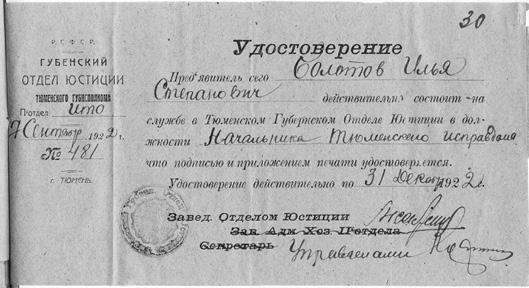 30
Р.С.Ф.С.Р.
ГУБЕНСКИЙ
ОТДЕЛ ЮСТИЦИИ
ТЮМЕНСКОГО ГУБИСПОЛКОМА
П/отдел
7 Сентября 1922г.
№ 481
г. ТЮМЕНЬ.
Удостоверение
Пред'явитель сего Болотов Илья
Степанович действительно состоит на
службе в Тюменском Губернском Отделе Юстиции в дол-
жности Начальника Тюменского исправдома
что подписью и приложением печати удостоверяется.
Удостоверение действительно по 31 Декабр 1922г.
Завед. Отделом Юстиции
Зав. Адм. Хоз. П/отдела
Секретарь Управделами